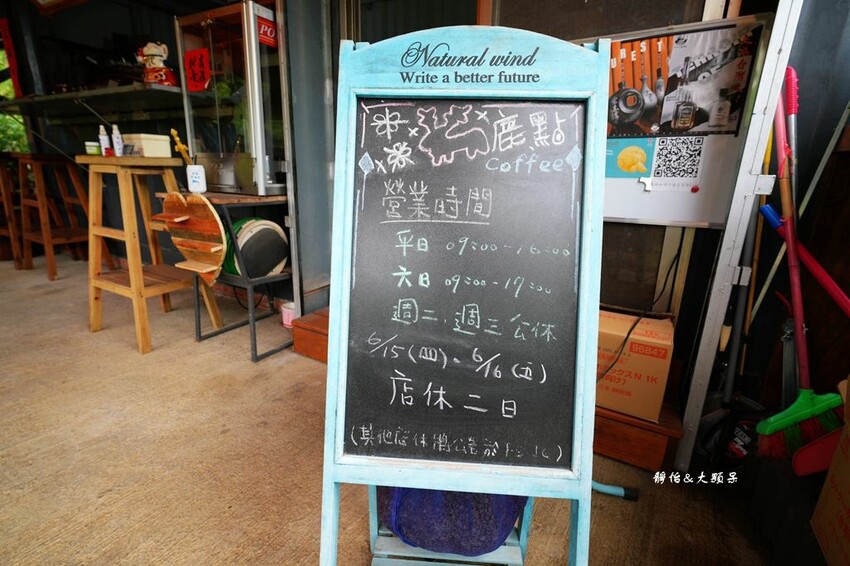 Natural wind
Write a better future
鹿點
Coffee
營業時間
平日 09:00-16:00
六日 09:00-17:00
週二、週三 公休
6/15(四)、6/16(五)
店休二日
(其他店休將公告於FB、IG)
96847
靜怡&大顆呆